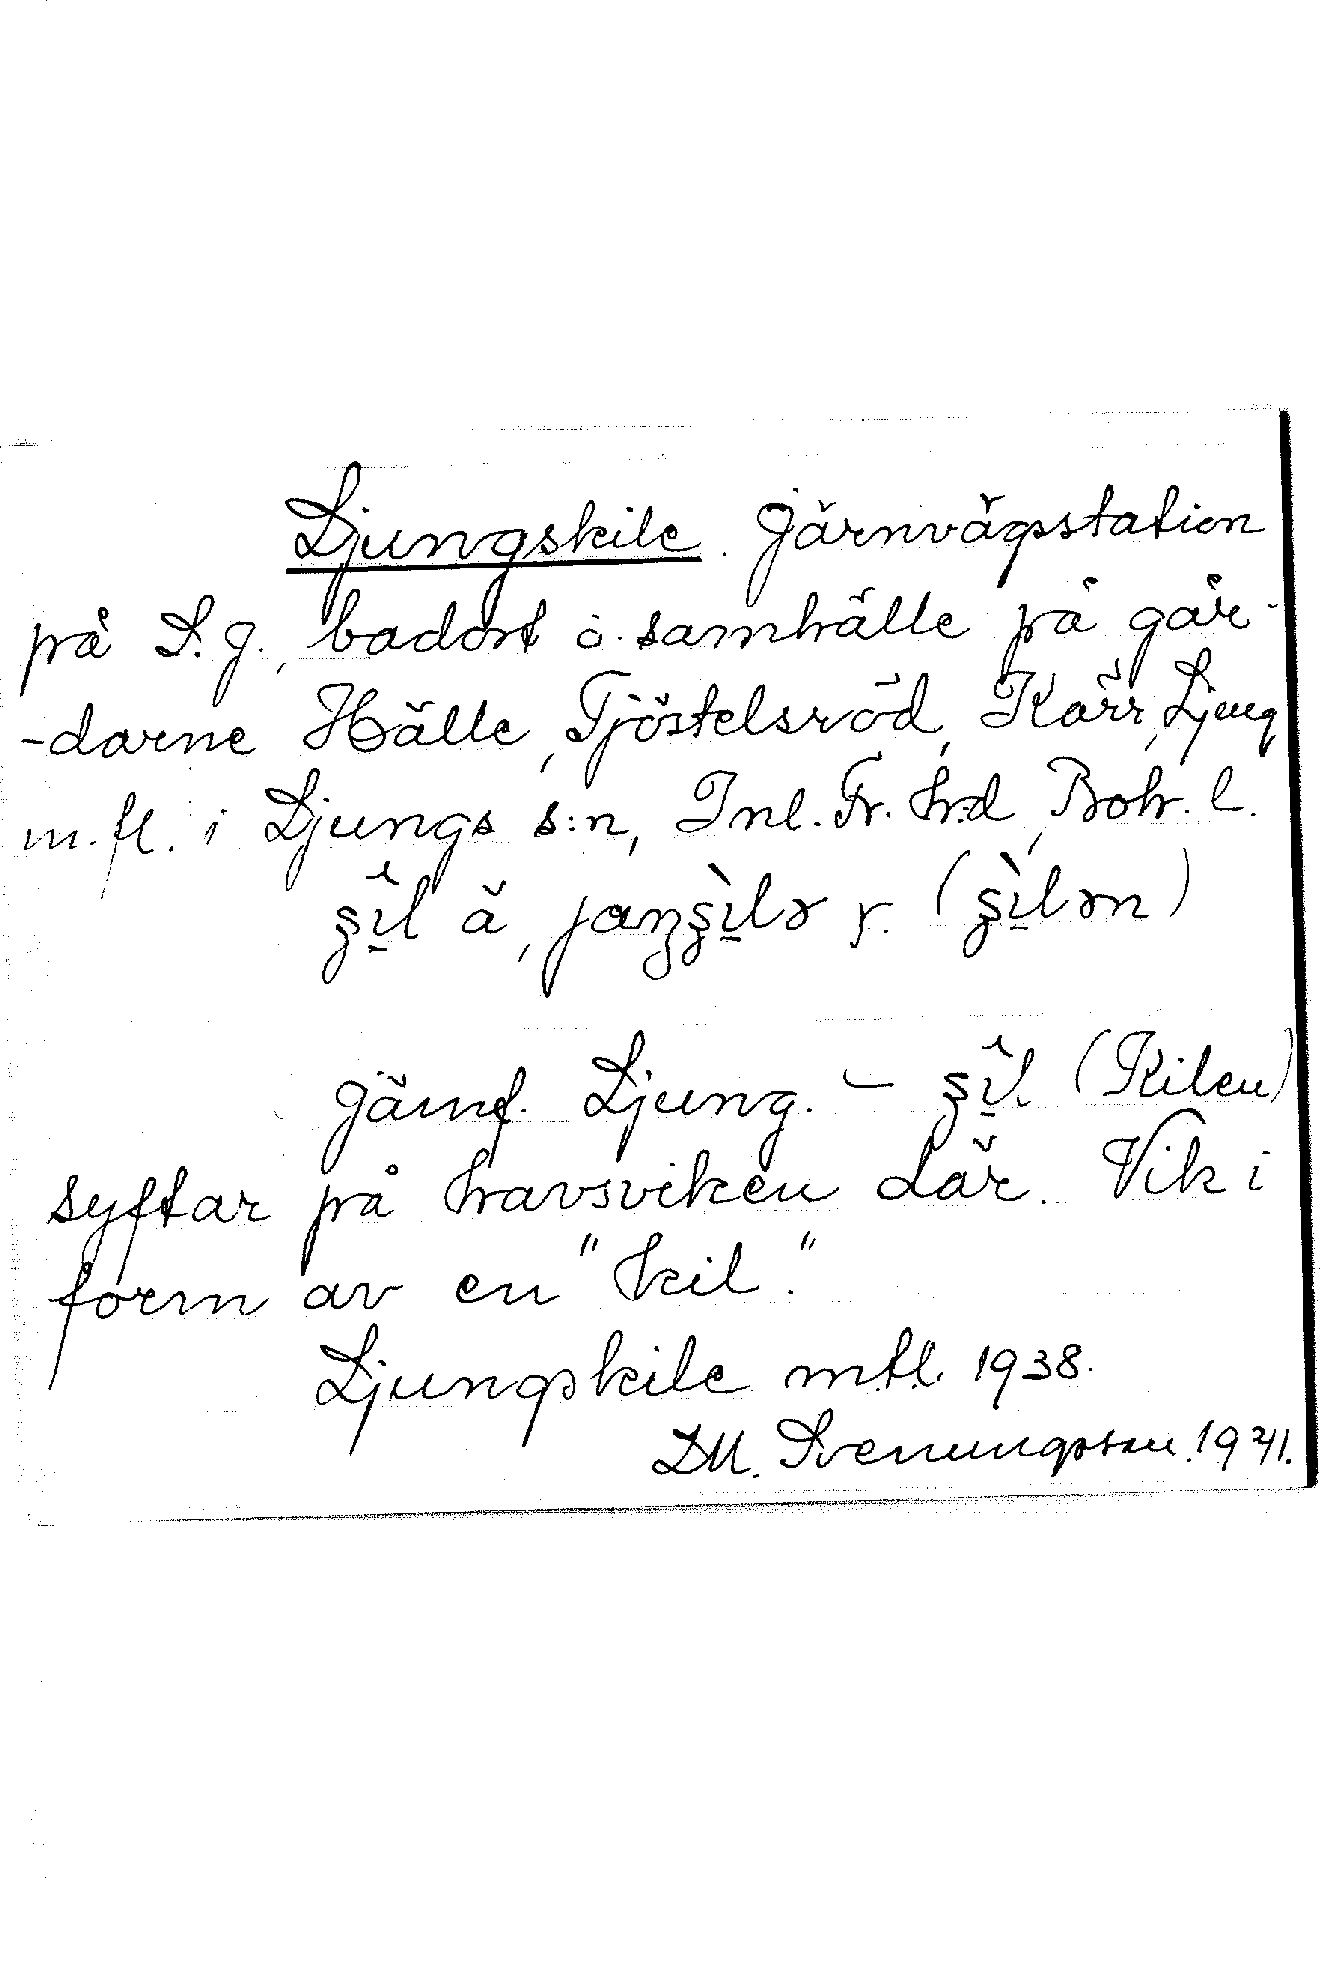 Ljungskile. Järnvägsstation
på S.J., badort o. samhälle på går-
-darne Hälle, Tjöstelsröd, Kärr, Ljung
m.fl. i Ljungs s:n, Inl. Fr. hrd, Boh. l.
Jämf. Ljung. – (Kilen)
syftar på havsviken där. Vik i
form av en "kil."
Ljungskile mtl. 1938.
D.M. Svenungsson. 1941.